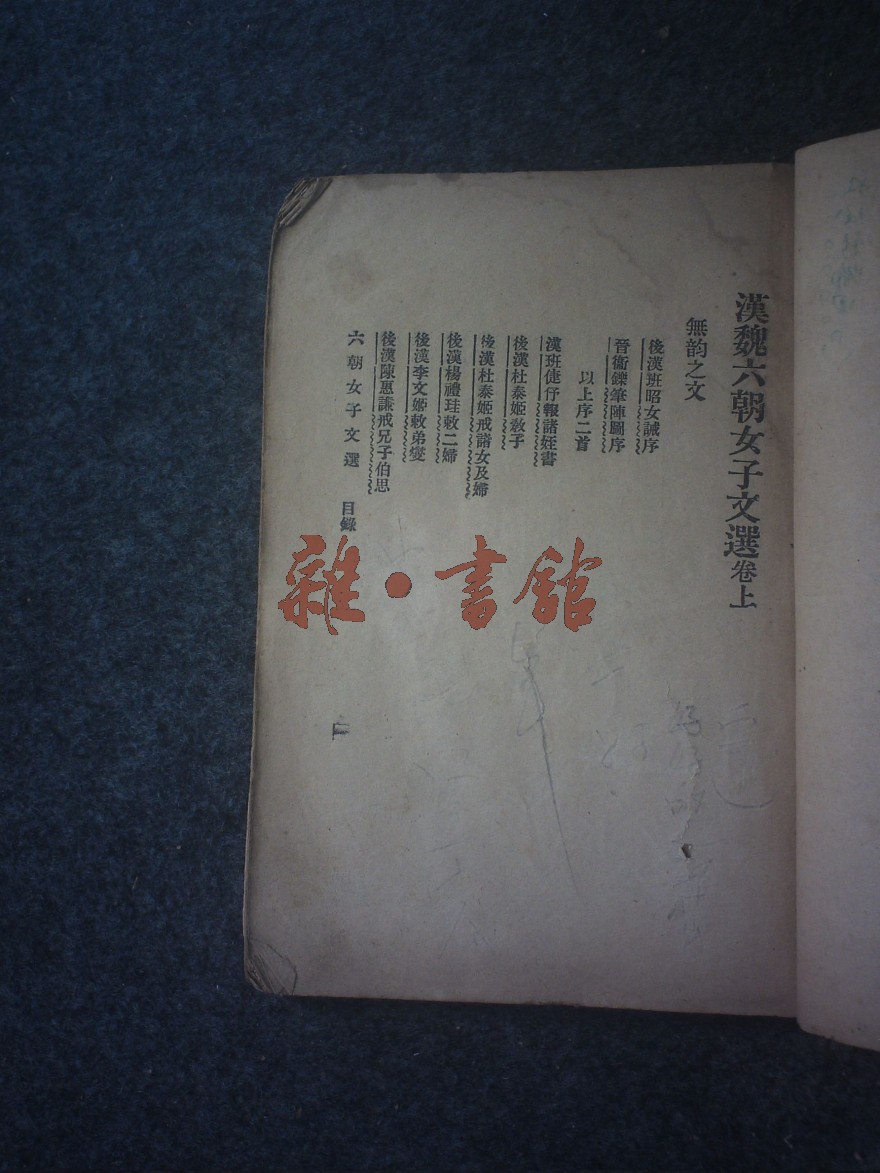 漢魏六朝女子文選卷上
無韵之文
後漢班昭女誡序
晉衞鑠筆陣圖序
以上序二首
漢班倢伃報諸姪書
後漢杜泰姬敎子
後漢杜泰姬戒諸女及婦
後漢楊禮珪敕二婦
後漢李文姬敕弟燮
後漢陳惠謙戒兄子伯思
六朝女子文選 目錄
一
雜·書館